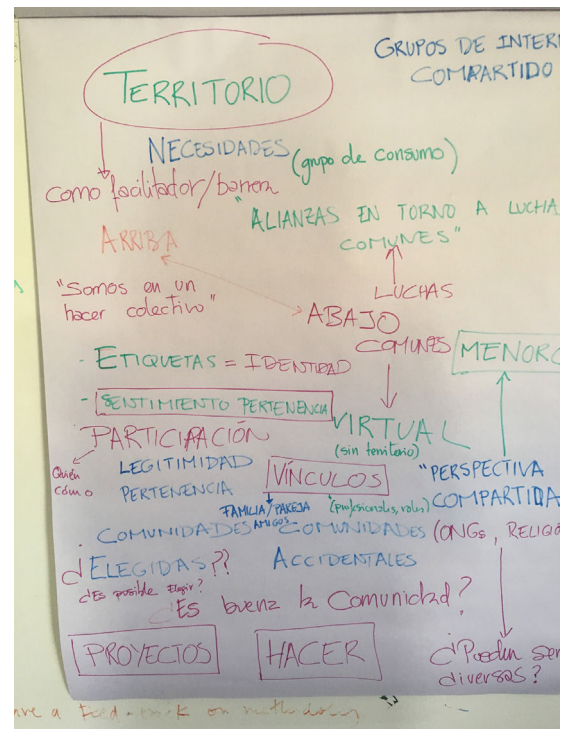 GRUPOS DE INTER
COMPARTIDO
TERRITORIO
NECESIDADES (grupo de consumo)
como facilitador/barrera
"ALIANZAS EN TORNO A LUCHA
COMUNES"
ARRIBA
"Somos en un
hacer colectivo"
LUCHAS
ABAJO
COMUNES
MENORC
- ETIQUETAS = IDENTIDAD
- SENTIMIENTO PERTENENCIA
VIRTUAL
(sin territorio)
PARTICIPACIÓN
Quién
cómo
LEGITIMIDAD
PERTENENCIA
VÍNCULOS
FAMILIA/PAREJA
AMIGOS
(profesionales, roles)
"PERSPECTIVA
COMPARTIDA
. COMUNIDADES COMUNIDADES (ONGs, RELIGIO
¿ELEGIDAS??
ACCIDENTALES
¿Es posible Elegir?
¿Es buena la Comunidad?
PROYECTOS
HACER
¿Pueden ser
diversas?
a Feed
on